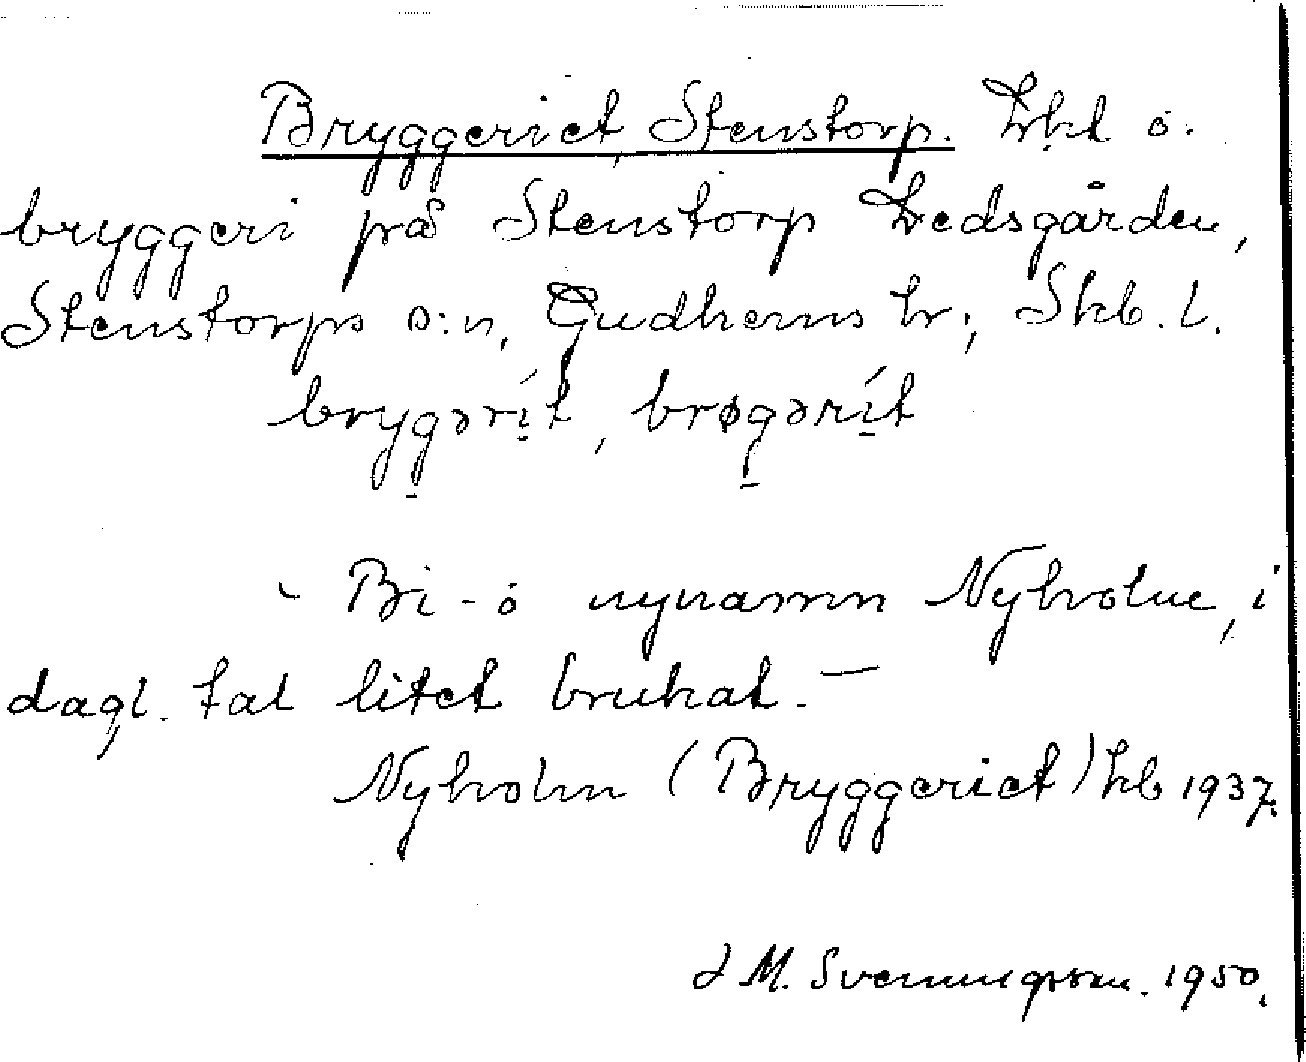 Bryggeriet, Stenstorp. Lht o.
bryggeri på Stenstorp Ledsgården,
Stenstorps s:n, Gudhems hr; Skb. l.
brygərít, brøgərít
- Bi- o nynamn Nyholm, i
dagl. tal litet brukat. —
Nyholm (Bryggeriet) kb 1937.
J M. Svenungsson. 1950.